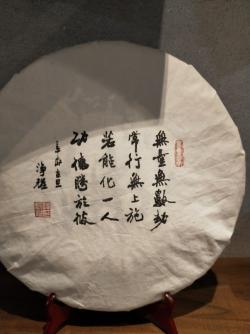 無量無數劫
常行無上施
若能化一人
功德勝於彼
淨耀